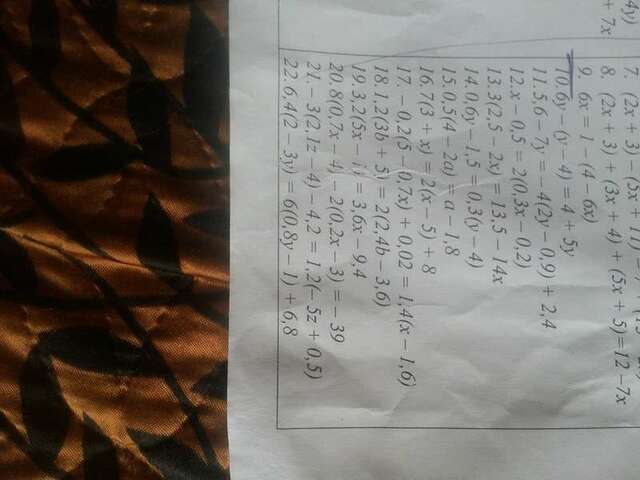 4y)
+ 7x
7. (2x + 3) – (5x + 11)
8. (2x + 3) + (3x + 4) + (5x + 5) = 12 – 7x
9. 6x = 1 – (4 – 6x)
10. 6y – (y – 4) = 4 + 5y
11. 5,6 – 7y = – 4(2y – 0,9) + 2,4
12. x – 0,5 = 2(0,3x – 0,2)
13. 3(2,5 – 2x) = 13,5 – 14x
14. 0,6y – 1,5 = 0,3(y – 4)
15. 0,5(4 – 2a) = a – 1,8
16. 7(3 + x) = – 2(x – 5) + 8
17. – 0,2(5 – 0,7x) + 0,02 = 1,4(x – 1,6)
18. 1,2(3b + 5) = 2(2,4b – 3,6)
19. 3,2(5x – 1) = 3,6x – 9,4
20. 8(0,7x – 4) – 2(0,2x – 3) = – 39
21. – 3(2,1z – 4) – 4,2 = 1,2(– 5z + 0,5)
22. 6,4(2 – 3y) = 6(0,8y – 1) + 6,8